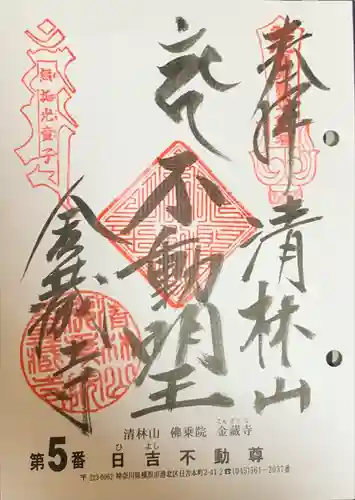 奉拝
清林山
不動明王
金蔵寺
無垢光童子
清林山 佛乗院 金蔵寺
こんぞうじ
第5番 日吉不動尊
ひよし
〒223-0062 神奈川県横浜市港北区日吉本町2-41-2 ☎(045)561-2037番